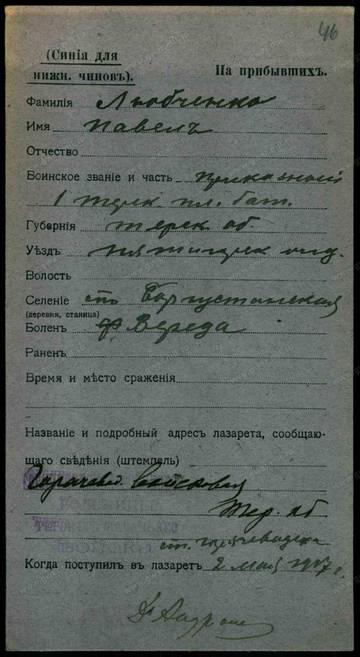 46
(Синія для
нижн. чиновъ).
На прибывшихъ.
Фамилія Любченко
Имя Павелъ
Отчество
Воинское званіе и часть приказный
1 терск пл. бат.
Губернія терск об.
Уѣздъ пятигорск отд.
Волость
Селеніе ст Боргустанская
(деревня, станица)
Боленъ
Раненъ
Время и мѣсто сраженія
Названіе и подробный адресъ лазарета, сообщаю-
щаго свѣдѣнія (штемпель)
Горячевод. войсковая
Тер. об
ст. горячеводская
Когда поступилъ въ лазаретъ 2 май 1917 г.